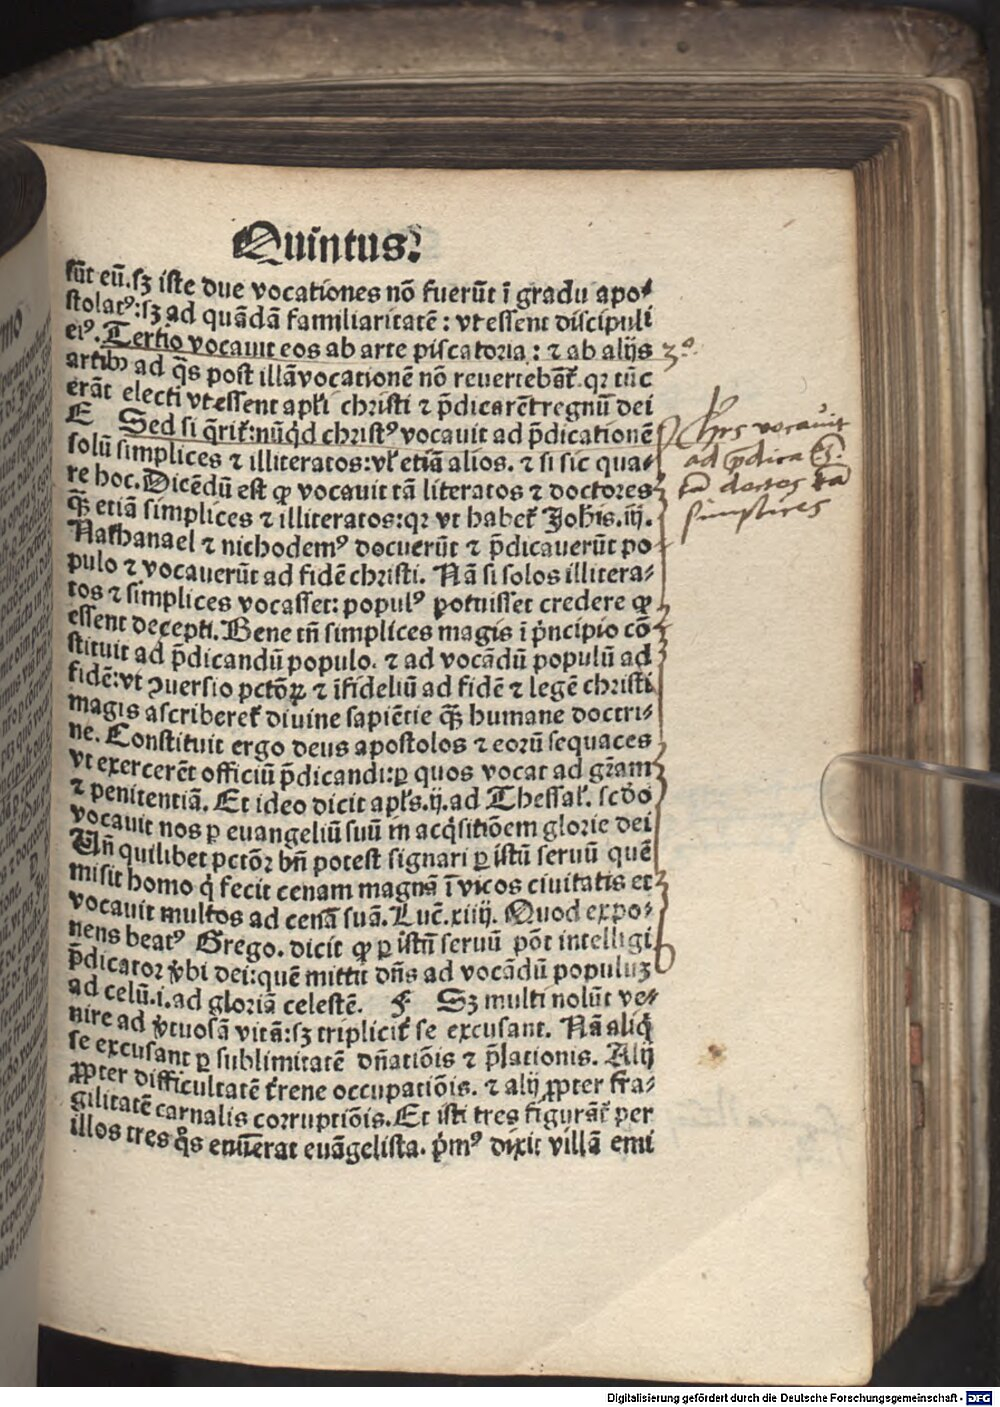 Quintus.
sūt eū.sꝫ iste due vocationes nō fuerūt ī gradu apo⸗
stolatꝰ:sꝫ ad quādā familiaritatē : vt essent discipuli
eiꝰ. Tertio vocauit eos ab arte piscatoria : ⁊ ab alijs
artibꝰ ad q̄s post illā vocationē nō reuertebāt̄. qꝛ tūc
erāt electi vt essent apl̄i christi ⁊ p̄dicarēt regnū dei
E Sed si q̄rit̄:nūqd̄ christꝰ vocauit ad p̄dicationē
solū simplices ⁊ illiteratos:vl̄ etiā alios. ⁊ si sic qua⸗
re hoc. Dicēdū est ꝙ vocauit tā literatos ⁊ doctores
q̄ꝫ etiā simplices ⁊ illiteratos:qꝛ vt habet̄ Joh̄is.iij.
Nathanael ⁊ nichodemꝰ docuerūt ⁊ p̄dicauerūt po⸗
pulo ⁊ vocauerūt ad fidē christi. Nā si solos illitera⸗
tos ⁊ simplices vocasset: populꝰ potuisset credere ꝙ
essent decepti. Bene tn̄ simplices magis ī pͥncipio cō
stituit ad p̄dicandū populo. ⁊ ad vocādū populū ad
fidē:vt ꝯuersio pctōꝝ ⁊ īfideliū ad fidē ⁊ legē christi
magis ascriberet̄ diuine sapiētie q̄ꝫ humane doctri⸗
ne. Constituit ergo deus apostolos ⁊ eorū sequaces
vt exercerēt officiū p̄dicandi:ꝑ quos vocat ad gr̄am
⁊ penitentiā. Et ideo dicit apl̄s.ij.ad Thessal̄. scd̄o
vocauit nos ꝑ euangeliū suū in acq̄sitiōem glorie dei
Vn̄ quilibet pctōꝛ bn̄ potest signari ꝑ istū seruū quē
misit homo qͥ fecit cenam magnā ī vicos ciuitatis et
vocauit multos ad cenā suā. Luc̄.xiiij. Quod expo⸗
nens beatꝰ Grego. dicit ꝙ ꝑ istū seruū pōt intelligi
p̄dicator v̄bi dei:quē mittit dn̄s ad vocādū populuꝫ
ad celū.i.ad gloriā celestē. F Sꝫ multi nolūt ve⸗
nire ad v̄tuosā vitā:sꝫ triplicit̄ se excusant. Nā aliqͥ
se excusant ꝑ sublimitatē dn̄atiōis ⁊ p̄lationis. Alij
ꝓpter difficultatē t̄rene occupatiōis. ⁊ alij ꝓpter fra⸗
gilitatē carnalis corruptiōis. Et isti tres figurāt̄ per
illos tres q̊s enūerat euāgelista. pͥmꝰ dixit villā emi
3º
Chrs vocauit
ad p̄dica
tā doctos
simplices
Digitalisierung gefördert durch die Deutsche Forschungsgemeinschaft - DFG